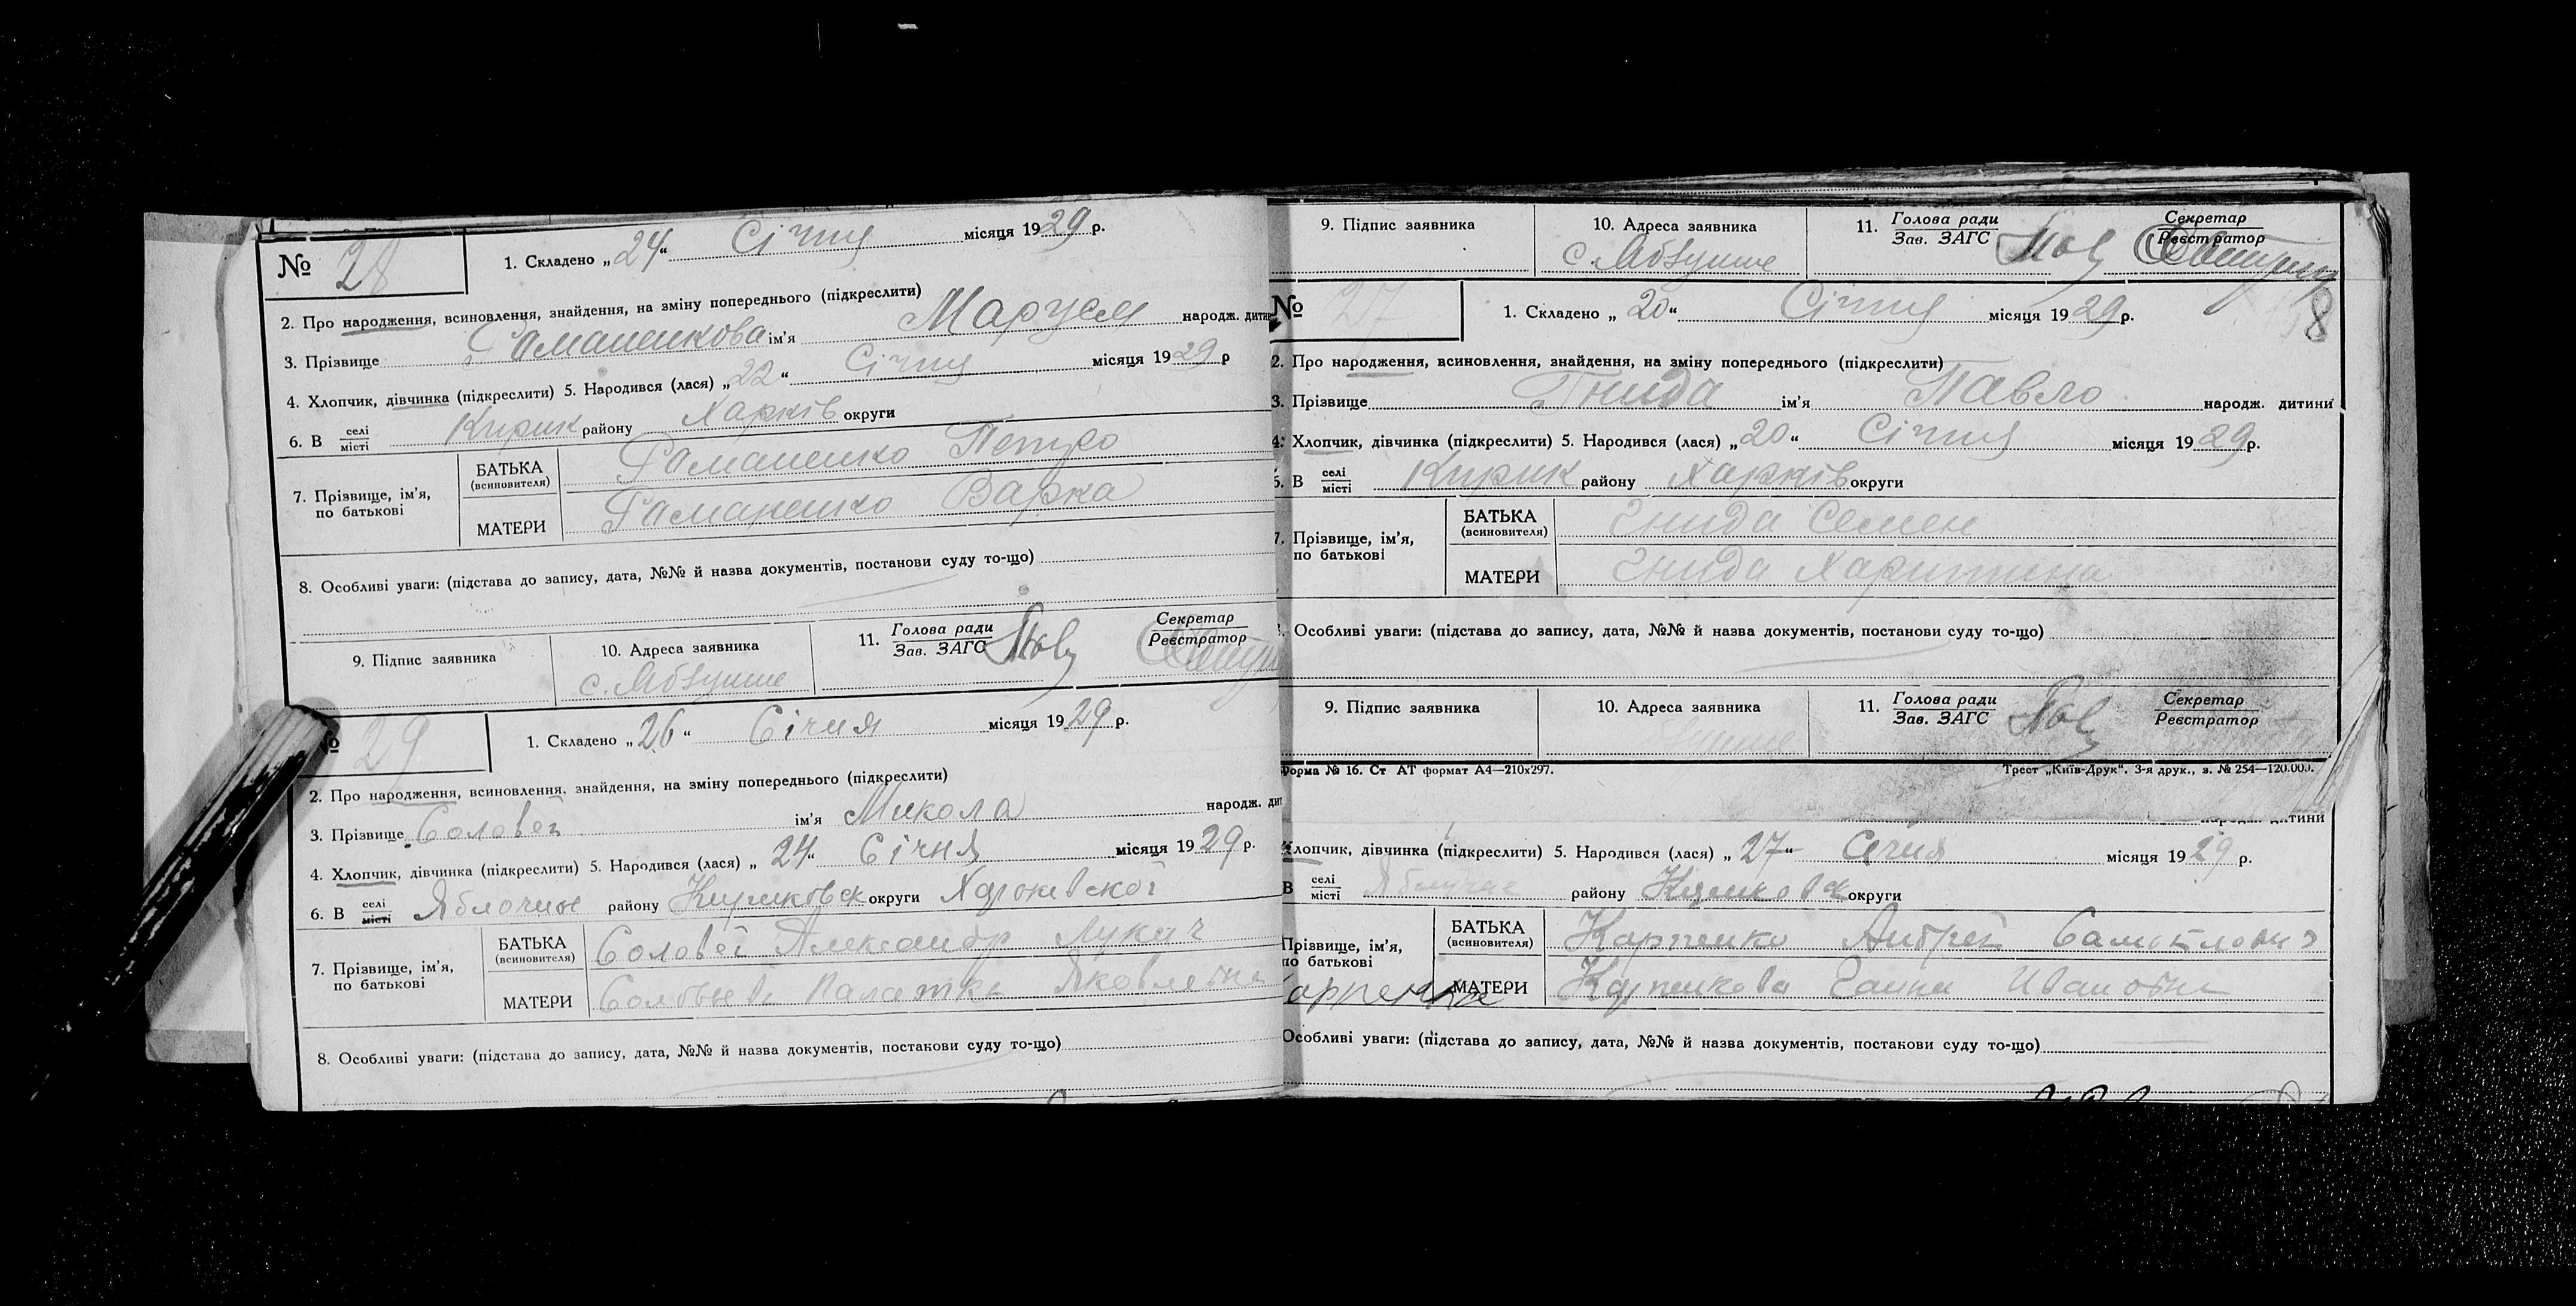 № 28
1. Складено „24“ Січня місяця 1929 р.
2. Про народження, всиновлення, знайдення, на зміну попереднього (підкреслити)
3. Прізвище Романенкова ім'я Маруся народж. дити
4. Хлопчик, дівчинка (підкреслити) 5. Народився (лася) „22“ Січня місяця 1929 р
6. В селі місті Кирик району Харків округи
7. Прізвище, ім'я, по батькові
БАТЬКА (всиновителя) Романенко Петро
МАТЕРИ Романенко Варка
8. Особливі уваги: (підстава до запису, дата, №№ й назва документів, постанови суду то-що)
9. Підпис заявника 10. Адреса заявника 11. Голова ради Зав. ЗАГС Секретар Реєстратор
с. Яблушне
№ 29
1. Складено „26“ Січня місяця 1929 р.
2. Про народження, всиновлення, знайдення, на зміну попереднього (підкреслити)
3. Прізвище Соловей ім'я Микола народж. дит
4. Хлопчик, дівчинка (підкреслити) 5. Народився (лася) „24“ Січня місяця 1929 р.
6. В селі місті Яблочное району Кириковск округи Харкивскої
7. Прізвище, ім'я, по батькові
БАТЬКА (всиновителя) Соловей Александр Лукич
МАТЕРИ Яковлевна
8. Особливі уваги: (підстава до запису, дата, №№ й назва документів, постанови суду то-що)
9. Підпис заявника 10. Адреса заявника 11. Голова ради Зав. ЗАГС Секретар Реєстратор
с. Яблушне
№ 27
1. Складено „20“ Січня місяця 1929 р.
8
2. Про народження, всиновлення, знайдення, на зміну попереднього (підкреслити)
3. Прізвище Гнида ім'я Павло народж. дитини
4. Хлопчик, дівчинка (підкреслити) 5. Народився (лася) „20“ Січня місяця 1929 р.
6. В селі місті Кирик району Харків округи
7. Прізвище, ім'я, по батькові
БАТЬКА (всиновителя) Гнида Семен
МАТЕРИ Гнида Харитина
Особливі уваги: (підстава до запису, дата, №№ й назва документів, постанови суду то-що)
9. Підпис заявника 10. Адреса заявника 11. Голова ради Зав. ЗАГС Секретар Реєстратор
Форма № 16. Ст АТ формат А4—210х297. Трест „Київ-Друк“. 3-я друк., з. № 254—120.000.
народж. дитини
Хлопчик, дівчинка (підкреслити) 5. Народився (лася) „27“ Січня місяця 1929 р.
В селі місті району округи
Прізвище, ім'я, по батькові
БАТЬКА (всиновителя) Карпенко Андрей
МАТЕРИ Карпенкова Ивановна
Особливі уваги: (підстава до запису, дата, №№ й назва документів, постанови суду то-що)